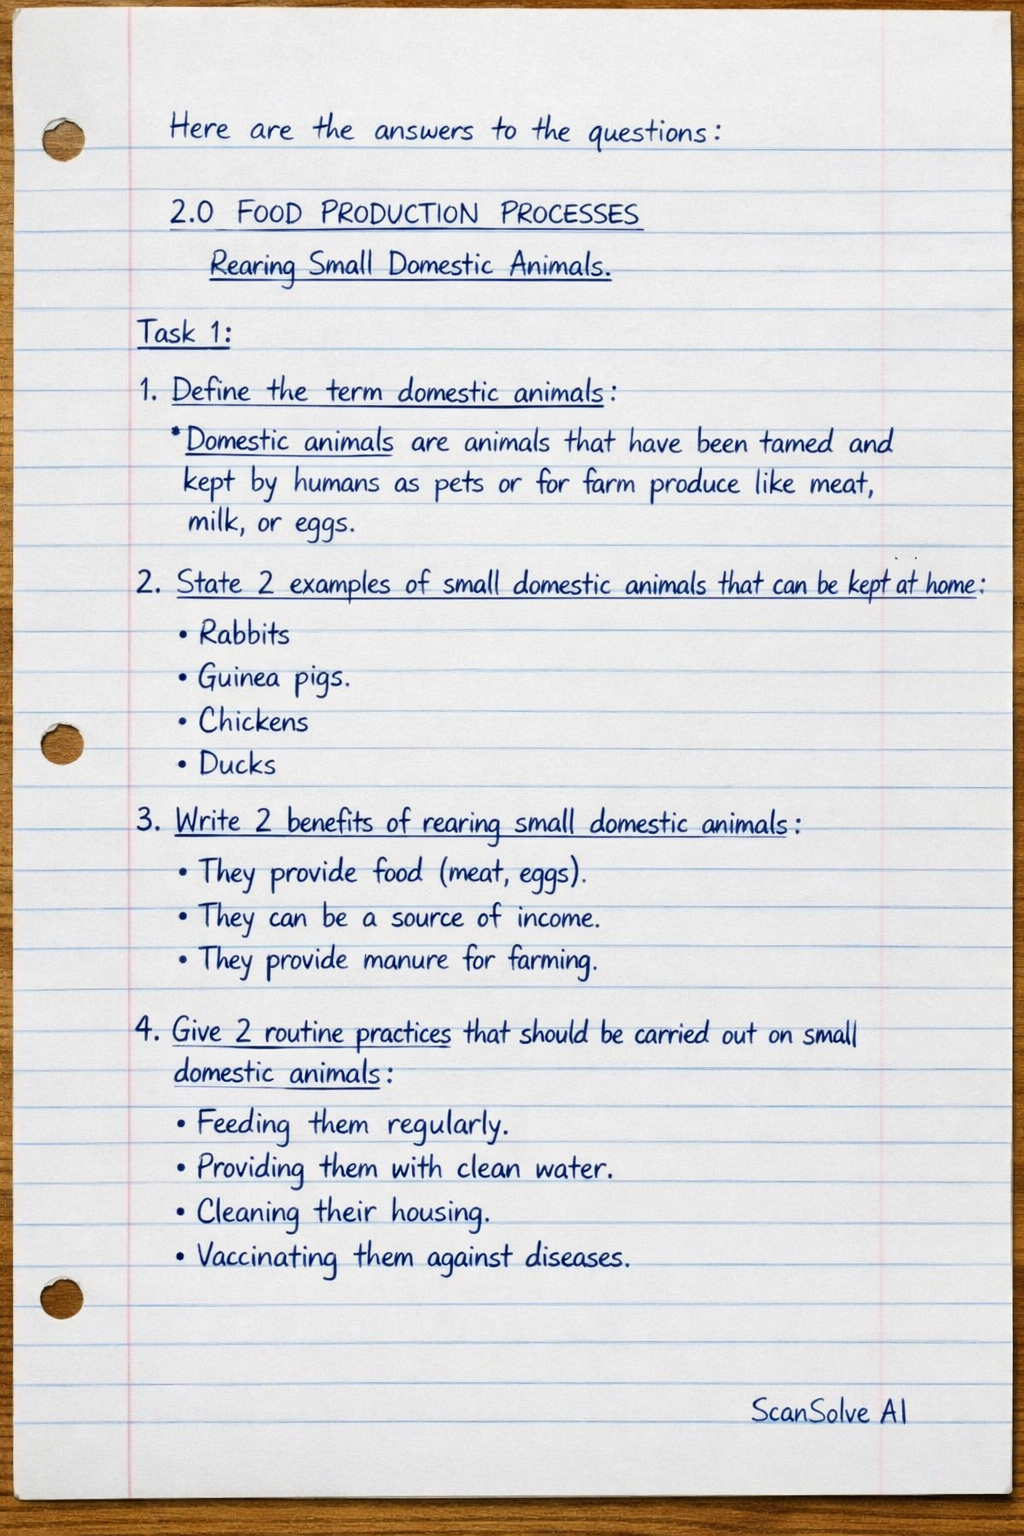 Here are the answers to the questions:
2.0 FOOD PRODUCTION PROCESSES
Rearing Small Domestic Animals.
Task 1:
1. Define the term domestic animals:
*Domestic animals are animals that have been tamed and
kept by humans as pets or for farm produce like meat,
milk, or eggs.
2. State 2 examples of small domestic animals that can be kept at home:
• Rabbits
• Guinea pigs.
• Chickens
• Ducks
3. Write 2 benefits of rearing small domestic animals:
• They provide food (meat, eggs).
• They can be a source of income.
• They provide manure for farming.
4. Give 2 routine practices that should be carried out on small
domestic animals:
• Feeding them regularly.
• Providing them with clean water.
• Cleaning their housing.
• Vaccinating them against diseases.
ScanSolve AI